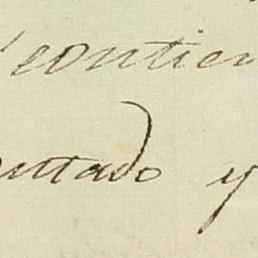 contien
uttado y